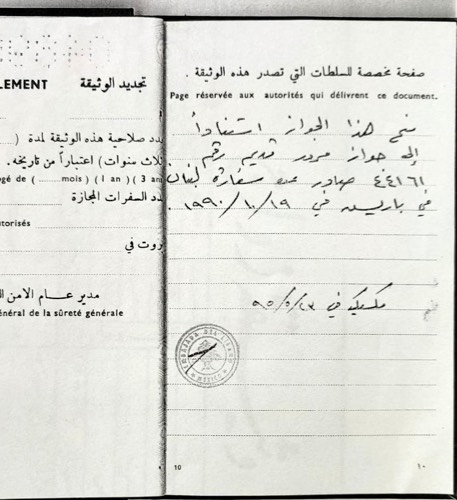 LEMENT تجديد الوثيقة
دد صلاحية هذه الوثيقة لمدة (
لاث سنوات) اعتباراً من تاريخه.
gé de ( ...... mois) ( 1 an) ( 3 an
دد السفرات المجازة
torisés
روت في
مدير عام الامن ال
énéral de la sûreté générale
صفحة مخصصة للسلطات التي تصدر هذه الوثيقة .
Page réservée aux autorités qui délivrent ce document.
منح هذا الجواز استناداً
إلى جواز مرور قديم رقم
٤٤١٦١ صادر عن سفارة لبنان
في باريس في ١٩٩٠/١٠/١٩.
مكسيكو في ٩٥/٥/٢٣
EMBAJADA DEL LIBANO
MEXICO
10 ١٠